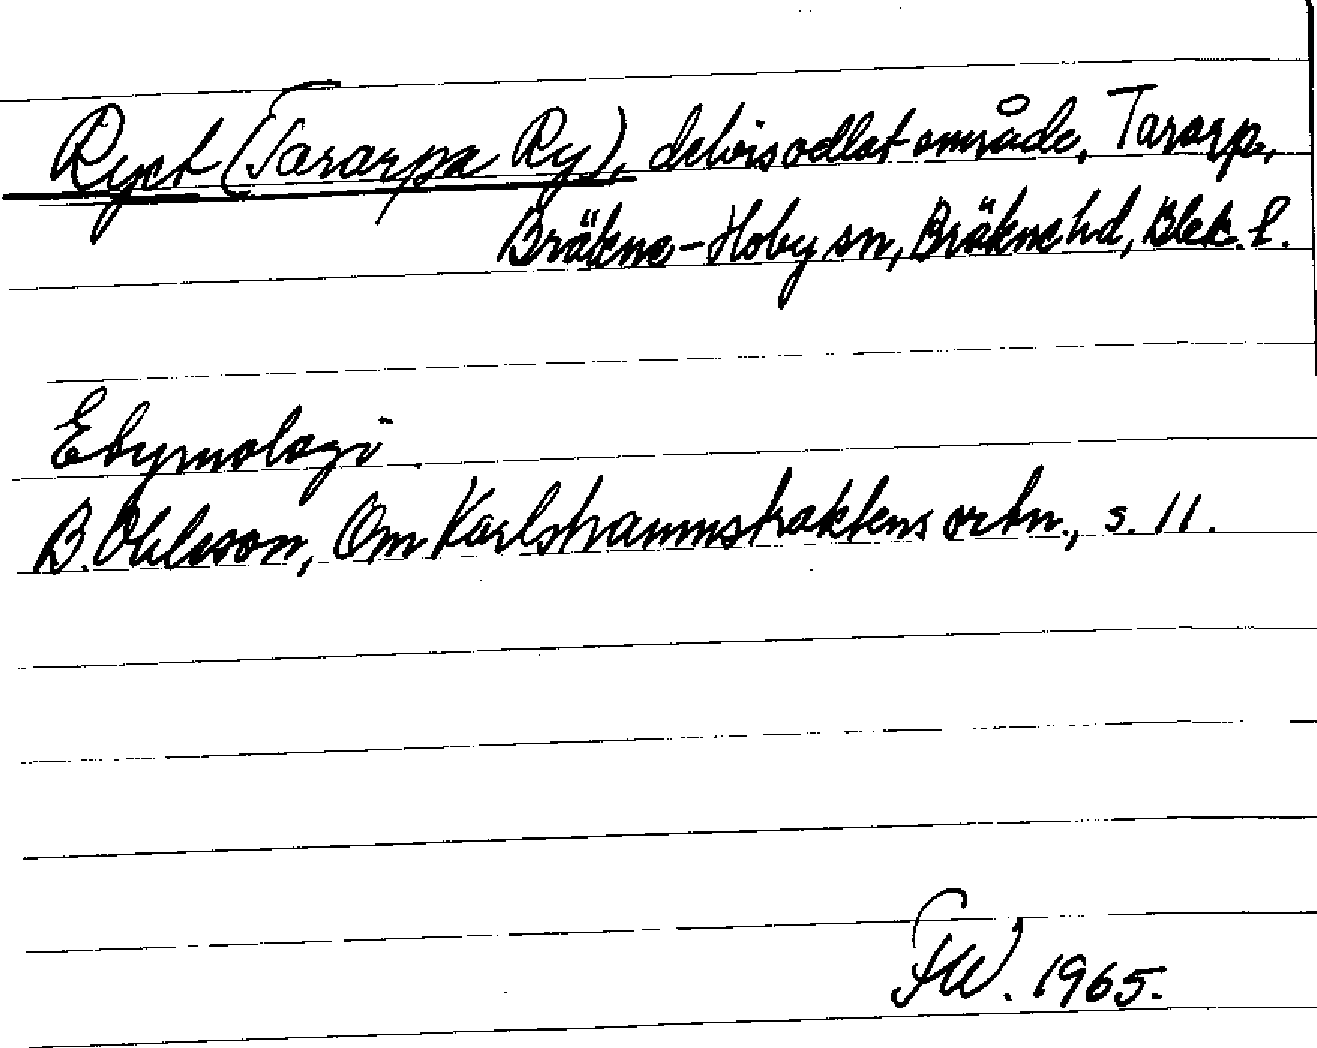 Ryet (Tararpa Ry), delvis odlat område, Tararp,
Bräkne-Hoby sn, Bräkne hd, Blek. l.
Etymologi
B. Ohlsson, Om Karlshamnstraktens ortn., s. 11.
FW. 1965.